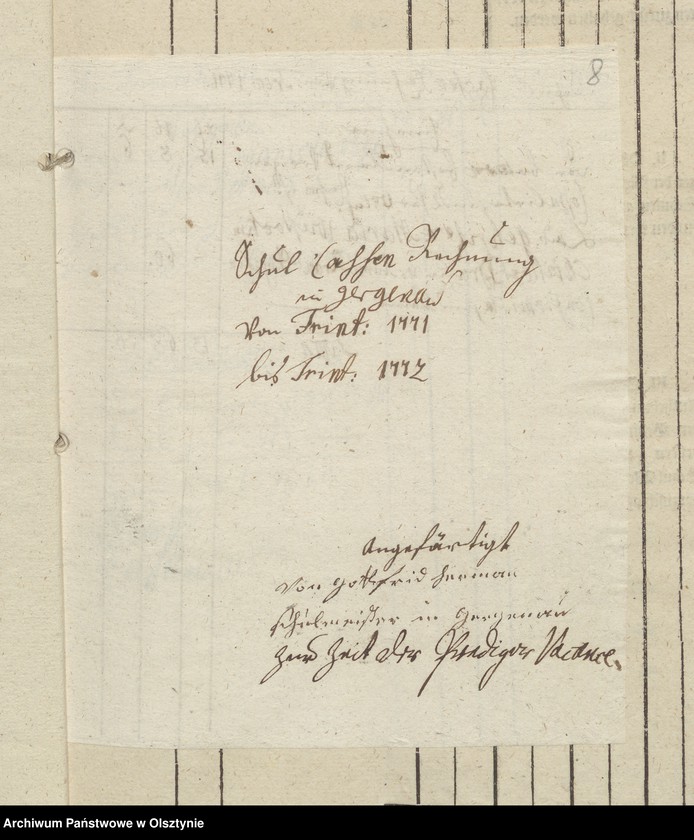 8
Schul Cassen Rechnung
in Gergenau
Von Trint: 1771
bis Trint: 1772
Angefärtigt
von Gottfrid Herman
Schulmeister in Gergenau
zur Zeit der Prediger Vacance.
Archiwum Państwowe w Olsztynie